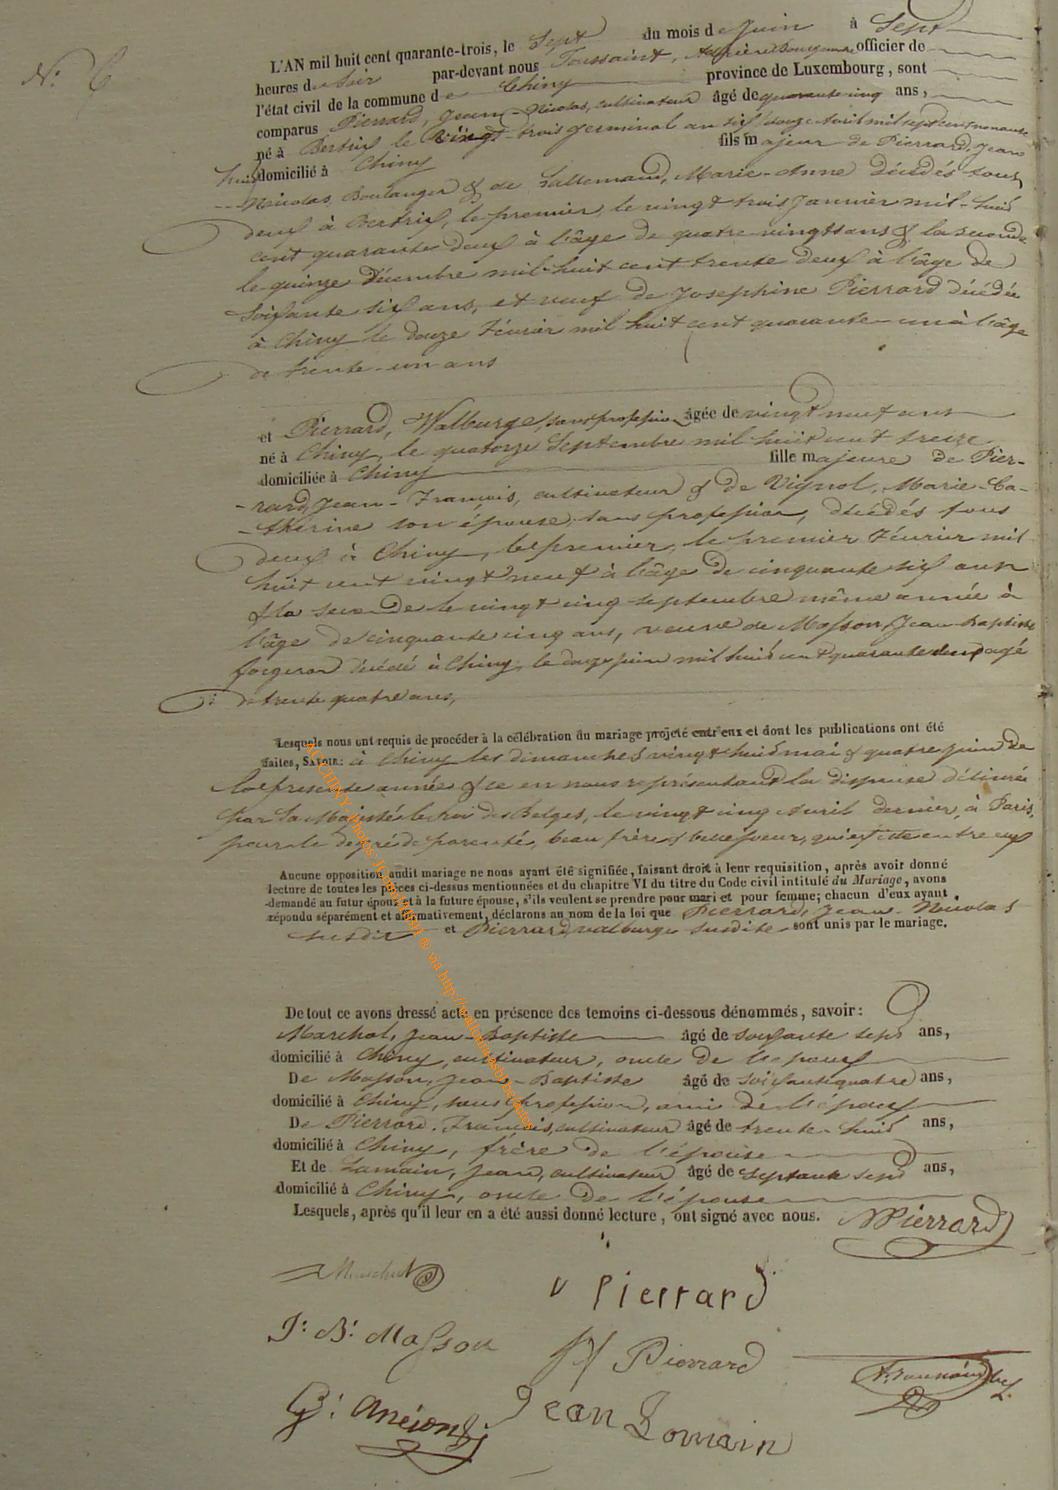 N.º 6
L'AN mil huit cent quarante-trois, le Sept du mois de Juin à Sept
heures du Soir par-devant nous Toussaint, officier de
l'état civil de la commune de Chiny province de Luxembourg, sont
comparus Pierrard, Jean-Nicolas, cultivateur âgé de quarante cinq ans,
né à Bertrix le vingt-trois germinal an six douze Avril mil sept cent nonante
huit domicilié à Chiny fils majeur de Pierrard, Jean
Nicolas, Boulanger & de Lallemand, Marie-Anne décédés tous
deux à Bertrix, le premier, le vingt trois Janvier mil-huit
cent quarante deux à l'âge de quatre-vingts ans & la seconde
le quinze Décembre mil-huit cent trente deux à l'âge de
soixante six ans, et veuf de Josephine Pierrard décédée
à Chiny le douze Février mil huit cent quarante-un à l'âge
de trente-un ans
et Pierrard, Walburge, sans profession âgée de vingt neuf ans
né à Chiny, le quatorze Septembre mil huit cent treize
domiciliée à Chiny fille majeure de Pier-
rard, Jean-François, cultivateur & de Vignol, Marie-Ca-
-therine son épouse, sans profession, décédés tous
deux à Chiny, le premier, le premier Février mil
huit cent vingt neuf à l'âge de cinquante six ans
& la seconde le vingt cinq septembre même année à
l'âge de cinquante cinq ans, veuve de Masson, Jean-Baptiste
forgeron décédé à Chiny, le douze juin mil huit cent quarante âgé
de trente quatre ans,
Lesquels nous ont requis de procéder à la célébration du mariage projeté entr'eux et dont les publications ont été
faites, SAVOIR: à Chiny les dimanches vingt-huit mai & quatre juin de
la présente année & ce en nous représentant la dispense délivrée
par Sa Majesté le roi des Belges, le vingt cinq Avril dernier, à Paris,
pour le degré de parenté, beau frère & belle soeur, qui existe entre eux
Aucune opposition audit mariage ne nous ayant été signifiée, faisant droit à leur requisition, après avoir donné
lecture de toutes les pièces ci-dessus mentionnées et du chapitre VI du titre du Code civil intitulé du Mariage, avons
demandé au futur époux et à la future épouse, s'ils veulent se prendre pour mari et pour femme; chacun d'eux ayant
répondu séparément et affirmativement, déclarons au nom de la loi que Pierrard, Jean-Nicolas
susdit et Pierrard, Walburge susdite sont unis par le mariage.
De tout ce avons dressé acte en présence des temoins ci-dessous dénommés, savoir:
Marchal, Jean-Baptiste âgé de soixante sept ans,
domicilié à Chiny, cultivateur, oncle de l'époux
De Masson, Jean-Baptiste âgé de soixante quatre ans,
domicilié à Chiny, sans profession, ami de l'époux
De Pierrard, François, cultivateur âgé de trente-huit ans,
domicilié à Chiny, frère de l'épouse
Et de Lamain, Jean, cultivateur âgé de septante sept ans,
domicilié à Chiny, oncle de l'épouse
Lesquels, après qu'il leur en a été aussi donné lecture, ont signé avec nous. Pierrard
Marchal
V Pierrard
J: B: Masson
Pierrard
Jean Lomain